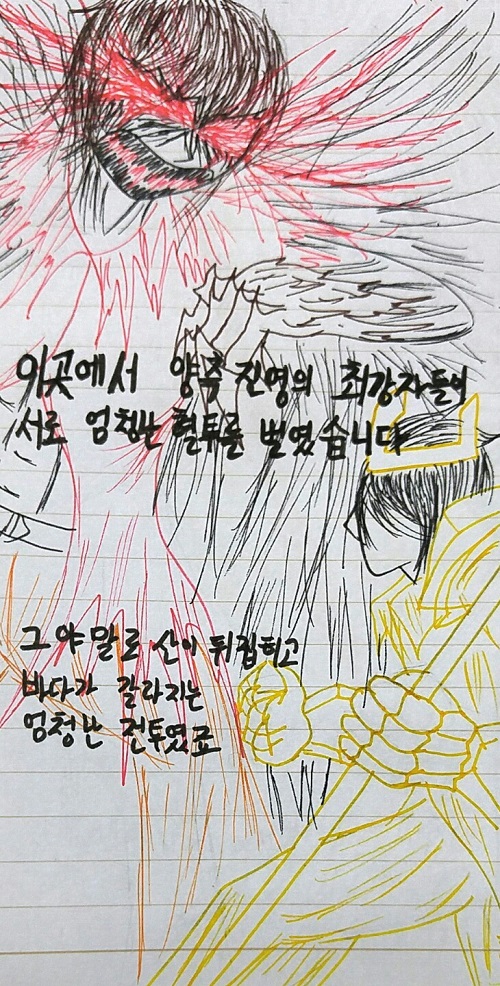 이곳에서 양측 진영의 최강자들이
서로 엄청난 혈투를 벌였습니다
그야말로 산이 뒤집히고
바다가 갈라지는
엄청난 전투였죠